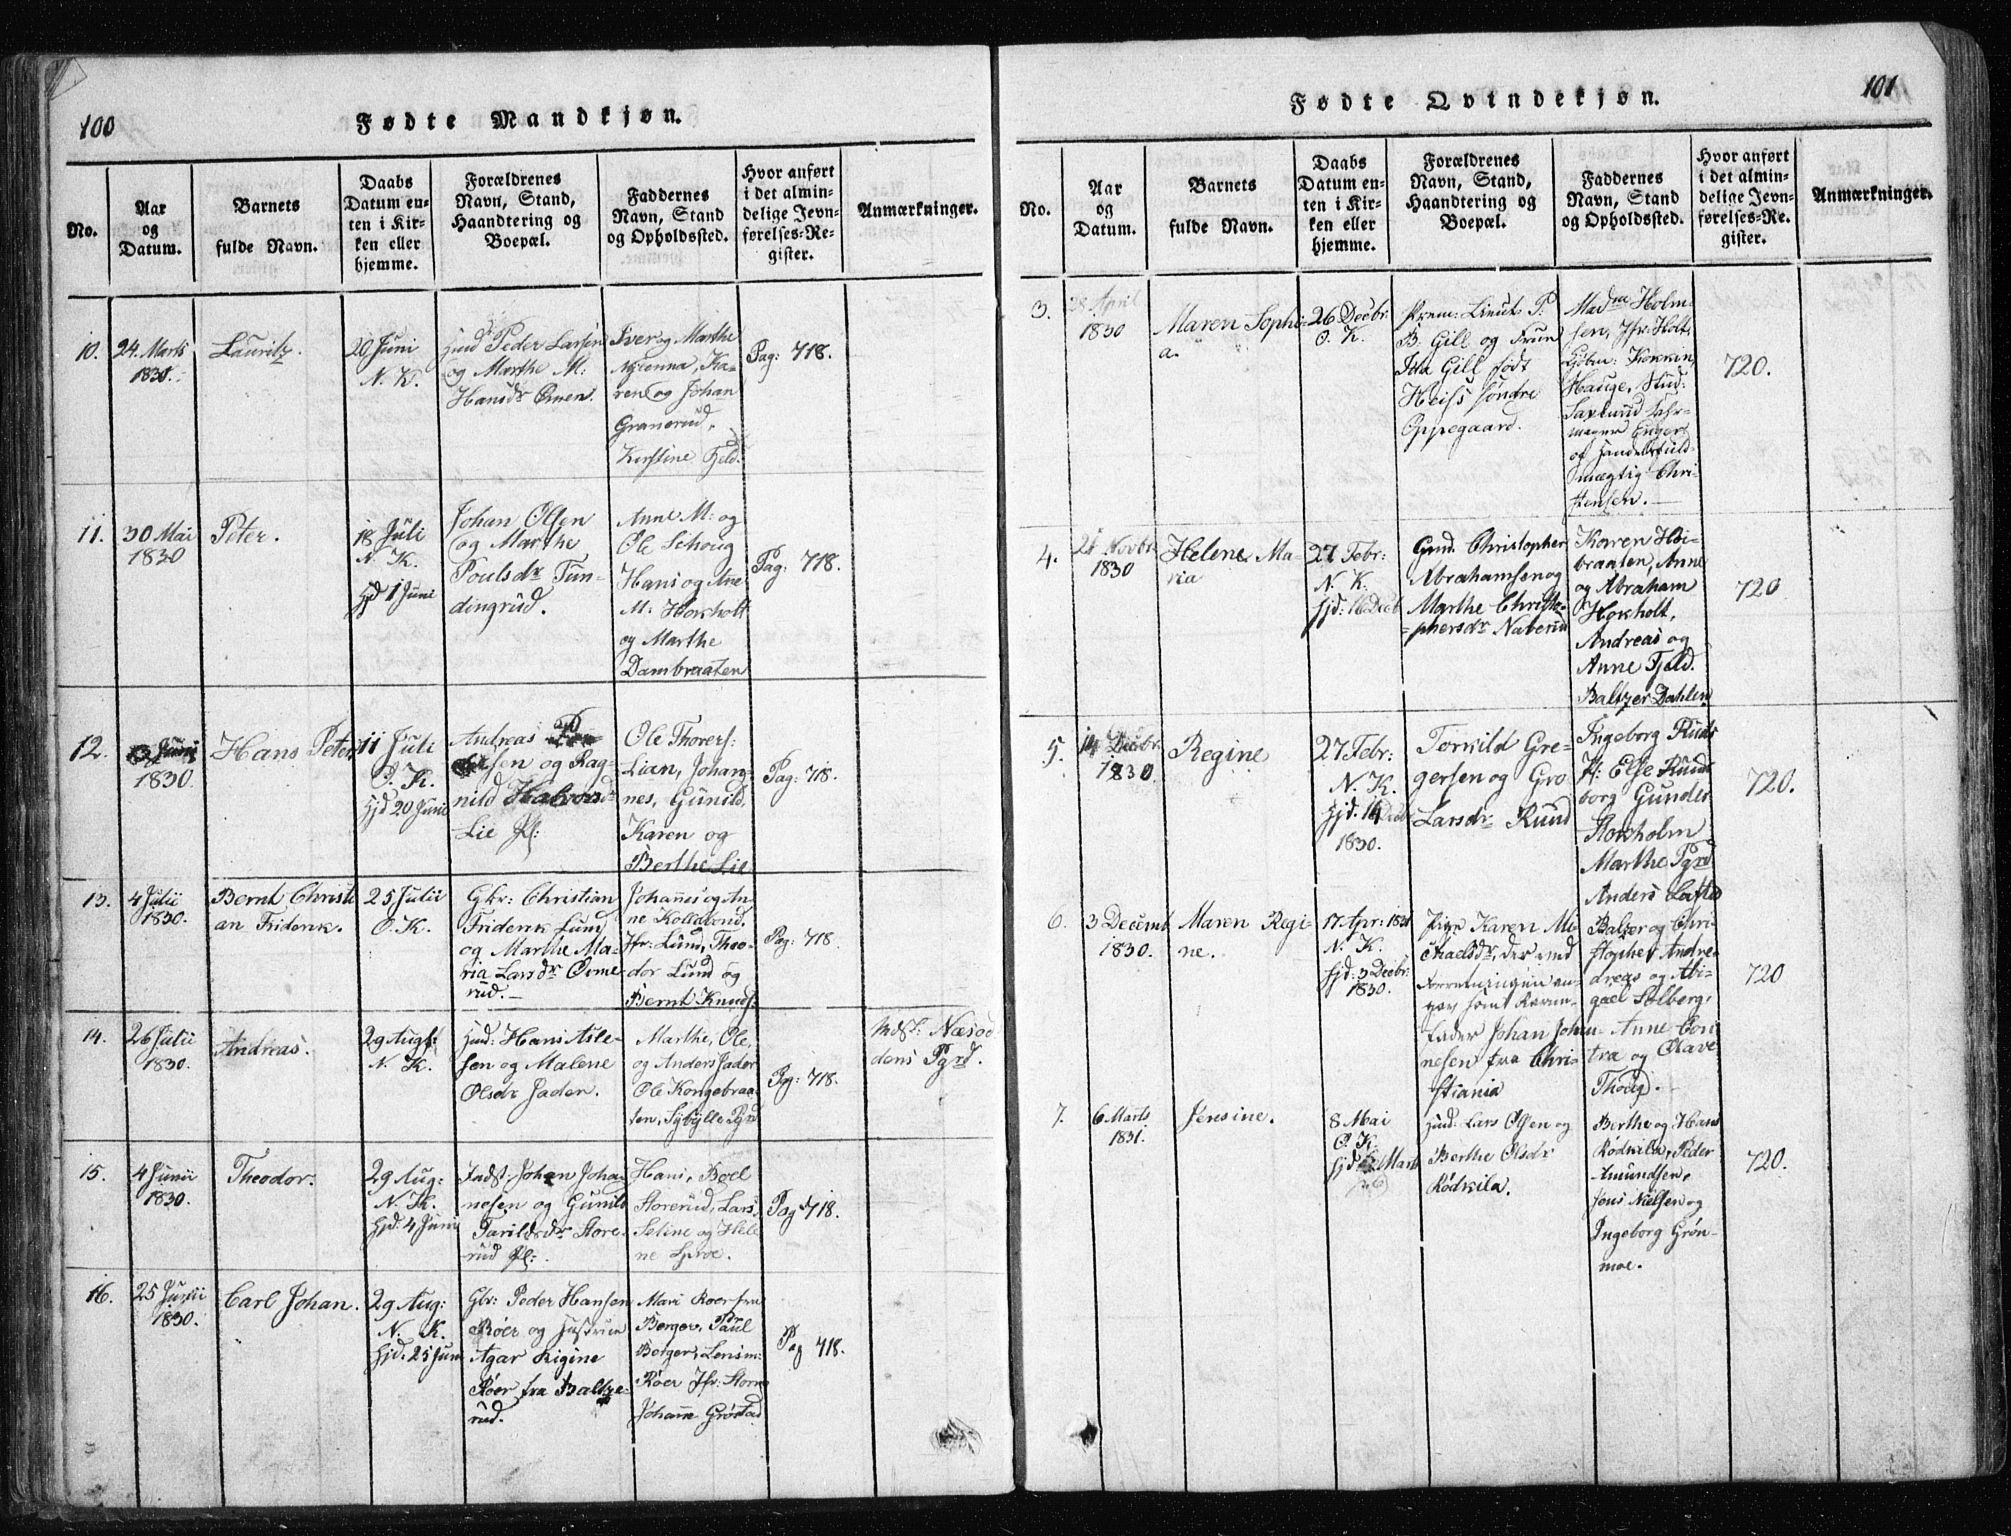 100
Fødte Mandkjøn.
No.
Aar
og
Datum.
Barnets
fulde Navn.
Daabs
Datum en-
ten i Kir-
ken eller
hjemme.
Forældrenes
Navn, Stand,
Haandtering og
Boepæl.
Faddernes
Navn, Stand
og Opholdssted.
Hvor anført
i det almin-
delige Jevn-
førelses-Re-
gister.
Anmærkninger.
10.
24 Marts
1830.
Lauritz.
20 Juni
N. K.
Huusd Peder Larsen
og Marthe M:
Hansdr
Iver og Marthe
Ka-
ren og Johan
Granerud,
Kirstine Fjeld.
Pag: 718.
11.
30 Mai
1830
Peter.
18 Juli
N. K.
Hjd 1 Juni
Johan Olsen
og Marthe
Poulsdr Tun-
dingrud.
Anne M: og
Ole Schoug
Hans og Ane
M: Hoxholt
og Marthe
Dambraaten
Pag: 718.
12.
Juni
1830
Hans Peter
11 Juli
O. K.
Hjd 20 Juni
Andreas
sen og Rag-
nild Halvorsdr
Lie Pl:
Ole Thorers:
Lian, Johan-
nes, Gunild,
Karen og
Berthe Lie
Pag: 718.
13.
4 Julii
1830.
Bernt Christi
an Friderik.
25 Julii
O. K.
Gkr: Christian
Friderik Lund
og Marthe Ma-
ria Larsdr Orme
rud.
Johannes og An
ne Kollerud,
Jfr: Lund, Theo-
dor Lund og
Bernt Knuds:
Pag: 718.
14.
26 Julii
1830.
Andreas.
29 Augt:
N. K.
Huusd: Hans Asle-
sen og Malene
Olsdr Jaden.
Marthe, Ole,
og Anders Jader
Ole Kongebraa-
ten, Sybylle Pgrd
Pag: 718.
Indst: Næsod
dens Pgrd.
15.
4 Junii
1830.
Theodor.
29 Aug:
N. K.
Hjd: 4 Juni
Indst: Johan Joha-
nesen og Gunild
Tarildsdr Store-
rud Pl:
Hans, Boel
Storerud, Lars,
Seline og Hele
ne Sproe.
Pag 718.
16.
25 Junii
1830.
Carl Johan.
29 Aug:
N. K.
Hjd: 25 Juni
Gbr: Peder Hansen
Røer og Hustrue
Agar Rigine
Røer fra Baltze-
rud.
Mari Roer fra
Berger, Paul
Berger, Lensm:
Røer Jfr: Storm
Johanne Grøstad
Pag 718.
101
Fødte Qvindekjøn.
No.
Aar
og
Datum.
Barnets
fulde Navn.
Daabs
Datum en-
ten i Kir-
ken eller
hjemme.
Forældrenes
Navn, Stand,
Haandtering og
Boepæl.
Faddernes
Navn, Stand
og Opholdssted.
Hvor anført
i det almin-
delige Jevn-
førelses-Re-
gister.
Anmærkninger.
3.
28 April
1830
Maren Sophi-
a.
26 Decbr:
O. K.
Prem: Lieut: P.
B. Gill og Frue
Ida Gill født
Heiss søndre
Oppegaard.
Madm Holm-
sen, Jfr: Holt,
Kjøbm:
Hauge, Stud:
Saxlund
Enger
of Handelsfuld-
mægtig Chri-
stensen.
720.
4.
Novbr
1830
Helene Ma-
ria
27 Febr:
N. K.
Hjd: 16 Decb
Gmd. Christopher
Abrahamsen og
Marthe Christo-
phersdr Naberud
Karen Høi-
braaten, Anne
og Abraham
Hoxholt,
Andreas og
Anne Fjeld.
Baltzer Dahlen
720
5.
14 Decbr
1830.
Regine
27 Febr:
N. K.
Hjd: 14 Decbr
1830.
Torkild Gre-
gersen og Gro
Larsdr Ruud
Ingeborg Ruds
Pl: Else Ruuds
borg Gunder
Stoxholm
Marthe Pgrd
Anders Loftes
720.
6.
3 Decemb
1830.
Maren Regi-
ne.
17 Apr: 1831
N. K.
Hjd: 3 Decbr:
1830.
Pige Karen Mi-
chaelsdr, der ved
an-
gav som Barne-
fader Johan Johan-
nesen fra Chri-
stiania
Balzer og Chri-
stopher Andre-
dreas og Abi-
gael Solberg,
Anne Con-
tra og Olave
Thoug.
720
7.
6 Marts
1831.
Jensine.
8 Mai
O. K.
Hjd: Marts
Huusd: Lars Olsen og
Berthe Olsdr
Rødkila.
Berthe og Hans
Rødkila, Peder
Amundsen,
Jens Nielsen og
Ingeborg Grøn-
moe.
720.